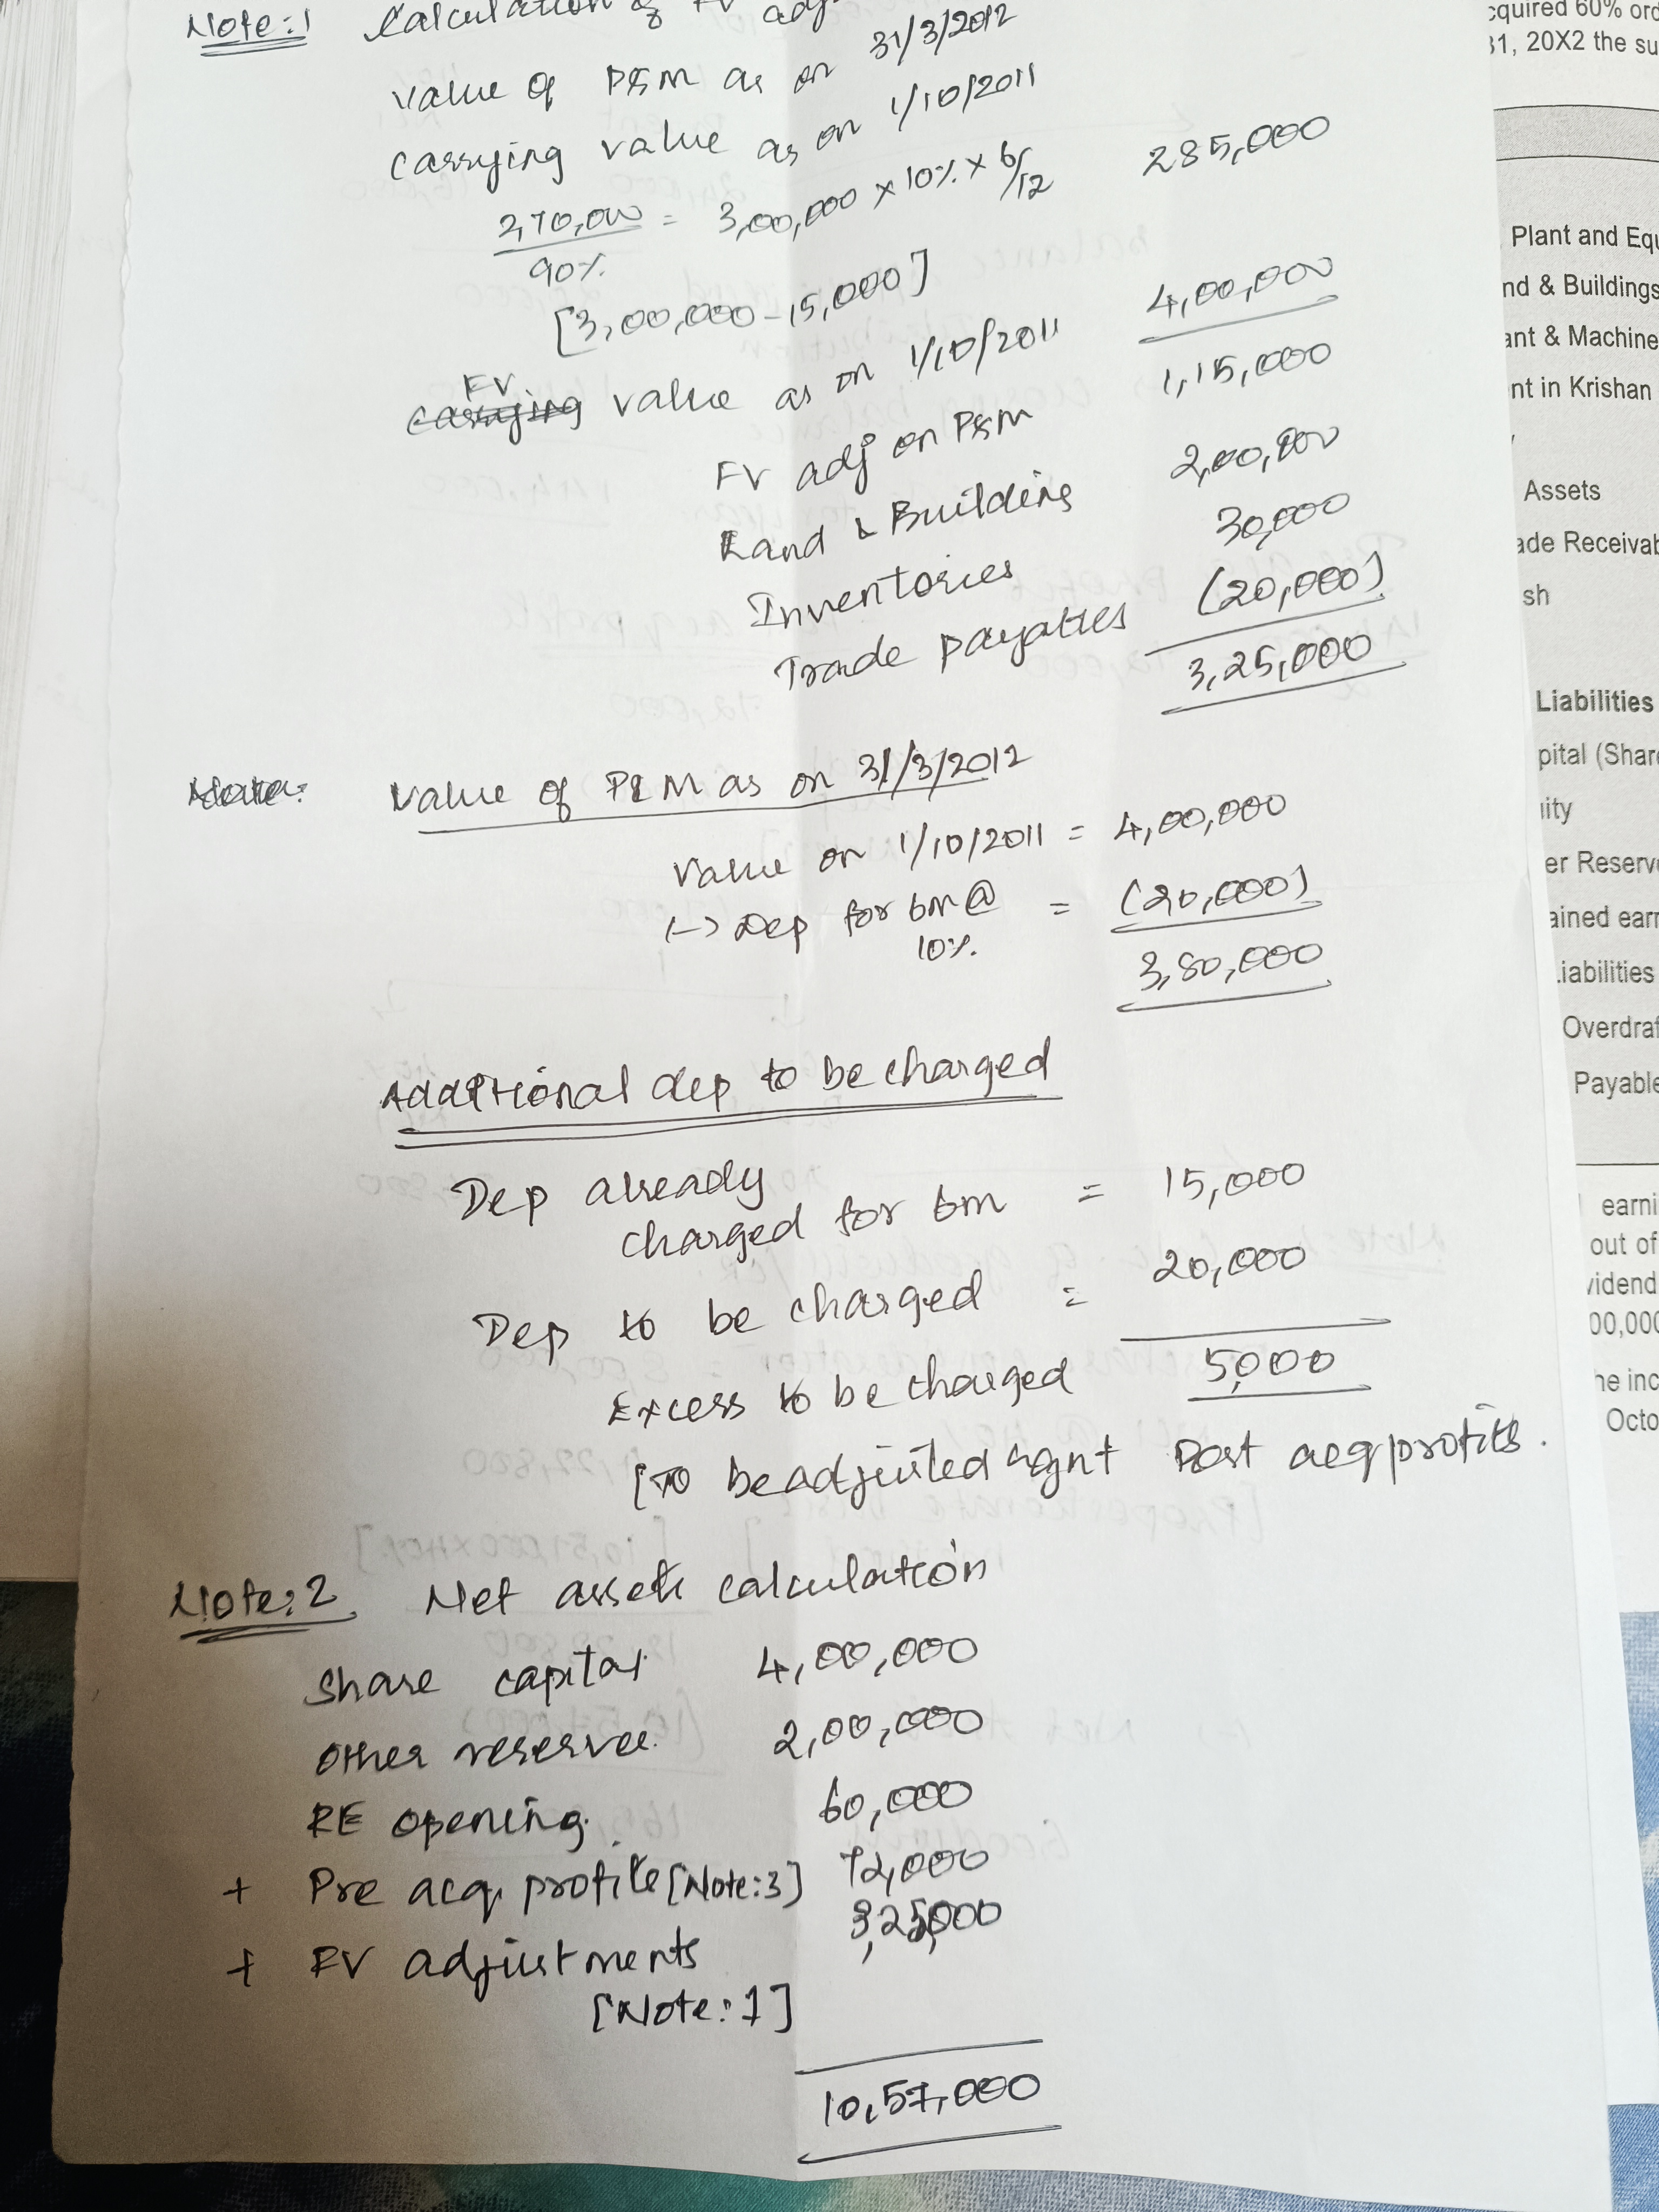 Note:1 Calculation of FV adj
Value of P&M as on 31/3/2012
Carrying value as on 1/10/2011
2,70,000 / 90% = 3,00,000 x 10% x 6/12 285,000
[3,00,000 - 15,000]
FV value as on 1/10/2011 4,00,000
FV adj on P&M 1,15,000
Land & Building 2,00,000
Inventories 30,000
Trade payables (20,000)
3,25,000
Value of P&M as on 31/3/2012
Value on 1/10/2011 = 4,00,000
(-) Dep for 6m @ 10% = (20,000)
3,80,000
Additional dep to be charged
Dep already
charged for 6m = 15,000
Dep to be charged = 20,000
Excess to be charged 5,000
[To be adjusted agnt Post acq profits.
Note:2 Net assets calculation
Share capital 4,00,000
Other reserves 2,00,000
RE opening 60,000
+ Pre acq profits [Note:3] 72,000
+ FV adjustments 3,25,000
[Note:1]
10,57,000
cquired 60% ord
31, 20X2 the su
Plant and Equ
nd & Buildings
ant & Machine
nt in Krishan
Assets
ade Receivab
sh
Liabilities
pital (Share
uity
er Reserve
ained earn
Liabilities
Overdraf
Payable
earni
out of
vidend
00,000
he inc
Octo